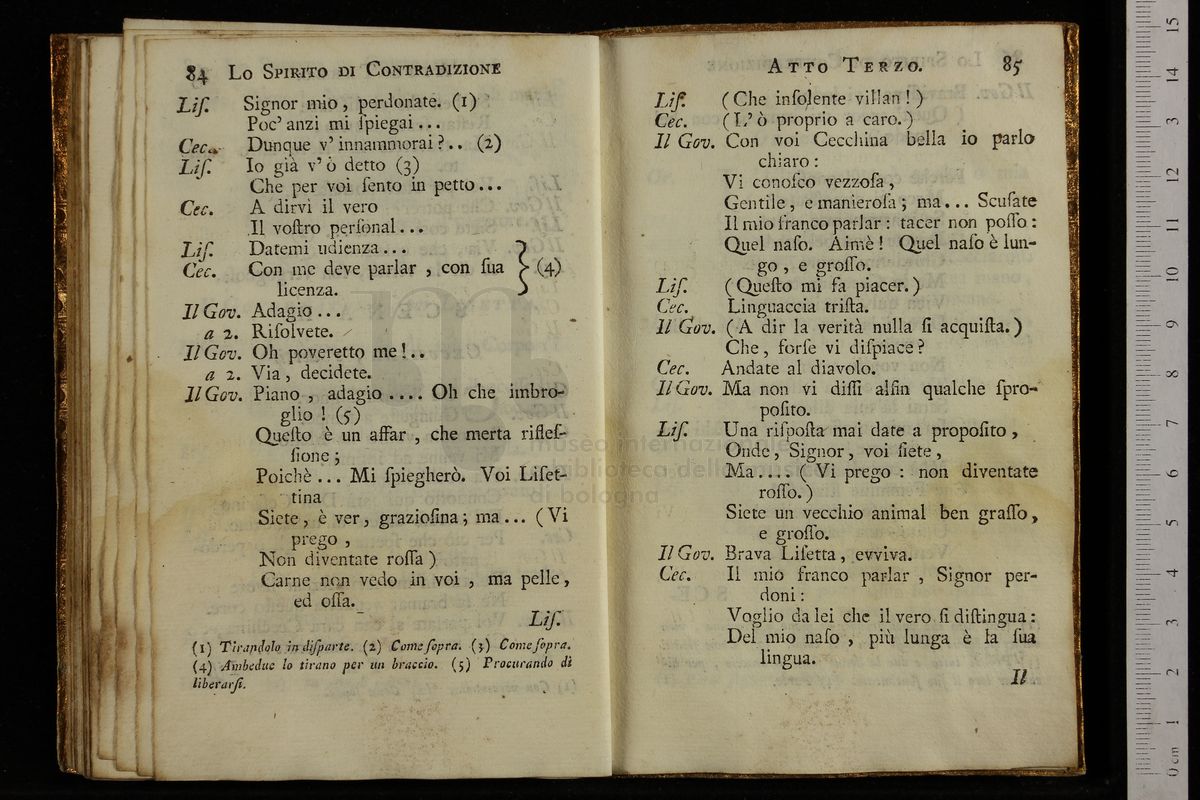 84 Lo Spirito di Contradizione
Liſ. Signor mio, perdonate. (1)
Poc' anzi mi ſpiegai...
Cec. Dunque v' innammorai?.. (2)
Liſ. Io già v' ò detto (3)
Che per voi ſento in petto...
Cec. A dirvi il vero
Il voſtro perſonal...
Liſ. Datemi udienza...
Cec. Con me deve parlar, con ſua } (4)
licenza.
Il Gov. Adagio...
a 2. Riſolvete.
Il Gov. Oh poveretto me!..
a 2. Via, decidete.
Il Gov. Piano, adagio.... Oh che imbro-
glio! (5)
Queſto è un affar, che merta rifleſ-
ſione;
Poichè... Mi ſpiegherò. Voi Liſet-
tina
Siete, è ver, grazioſina; ma... (Vi
prego,
Non diventate roſſa)
Carne non vedo in voi, ma pelle,
ed oſſa.
Liſ.
(1) Tirandolo in diſparte. (2) Come ſopra. (3) Come ſopra.
(4) Ambedue lo tirano per un braccio. (5) Procurando di
liberarſi.
Atto Terzo. 85
Liſ. (Che inſolente villan!)
Cec. (L' ò proprio a caro.)
Il Gov. Con voi Cecchina bella io parlo
chiaro:
Vi conoſco vezzoſa,
Gentile, e manieroſa; ma... Scuſate
Il mio franco parlar: tacer non poſſo:
Quel naſo. Aimè! Quel naſo è lun-
go, e groſſo.
Liſ. (Queſto mi fa piacer.)
Cec. Linguaccia triſta.
Il Gov. (A dir la verità nulla ſi acquiſta.)
Che, forſe vi diſpiace?
Cec. Andate al diavolo.
Il Gov. Ma non vi diſſi alfin qualche ſpro-
poſito.
Liſ. Una riſpoſta mai date a propoſito,
Onde, Signor, voi ſiete,
Ma.... (Vi prego: non diventate
roſſo.)
Siete un vecchio animal ben graſſo,
e groſſo.
Il Gov. Brava Liſetta, evviva.
Cec. Il mio franco parlar, Signor per-
doni:
Voglio da lei che il vero ſi diſtingua:
Del mio naſo, più lunga è la ſua
lingua.
Il
museo internazionale
biblioteca della musica
di bologna
0 cm 1 2 3 4 5 6 7 8 9 10 11 12 13 14 15